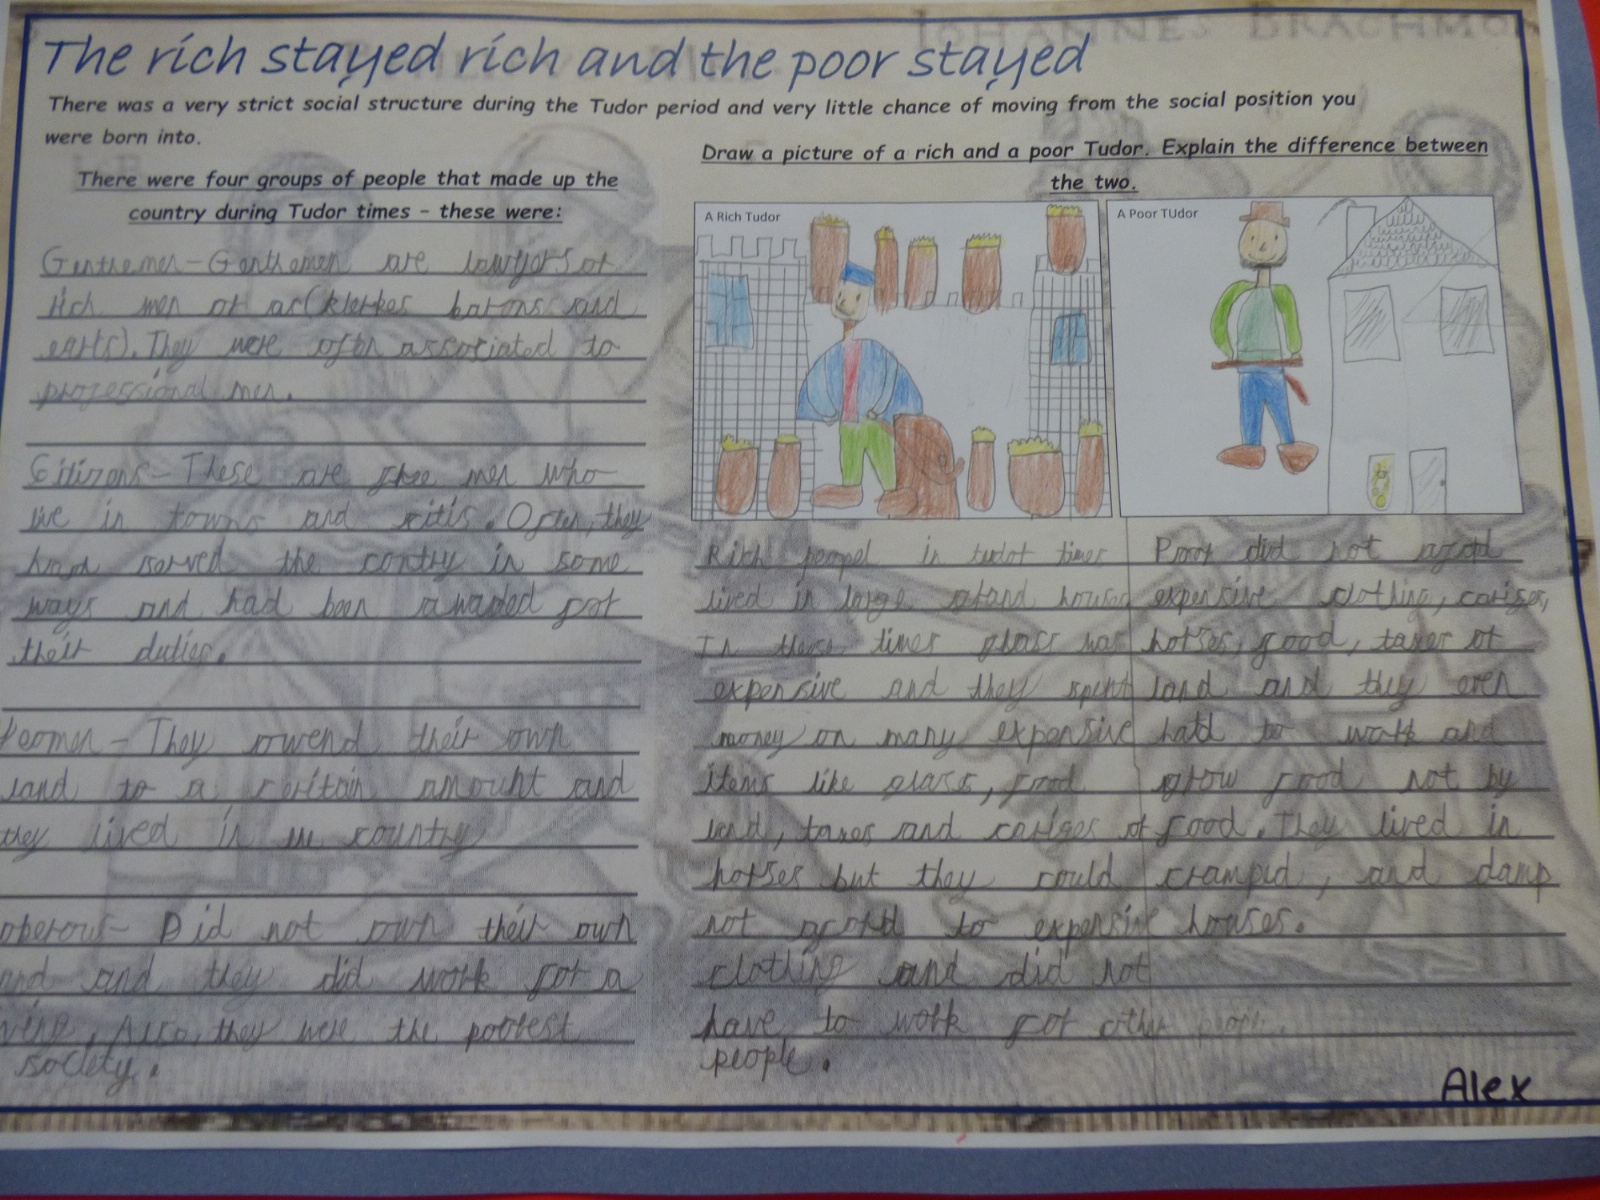 JOHANNES BRACHMO
The rich stayed rich and the poor stayed
There was a very strict social structure during the Tudor period and very little chance of moving from the social position you
were born into.
There were four groups of people that made up the
country during Tudor times – these were:
Gentlemen – Gentlemen are lawyors or
rich men or as (
barons and
earls). They were often associated to
professional men.
Citizens – These are free men who
live in towns and citis. Often, they
had served the contry in some
ways and had been awaded for
their duties.
Yeomen – They owend their own
land to a certain amount and
they lived in the country
Did not own their own
and they did work for a
Also, they were the poorest
society.
Draw a picture of a rich and a poor Tudor. Explain the difference between
the two.
A Rich Tudor
A Poor TUdor
Rich peopel in tudor times
lived in large houses
In these times glass was
expensive and they spent
money on many expensive
items like glass, food
land, taxes and cariges or
horses but they could
not afford to expensive
clothing and did not
have to work for other people.
people.
Poor did not afford
expensive clothing, cariges,
horses, food, taxes or
land and they even
had to work and
grow food not by
food. They lived in
crampid, and damp
houses.
Alex